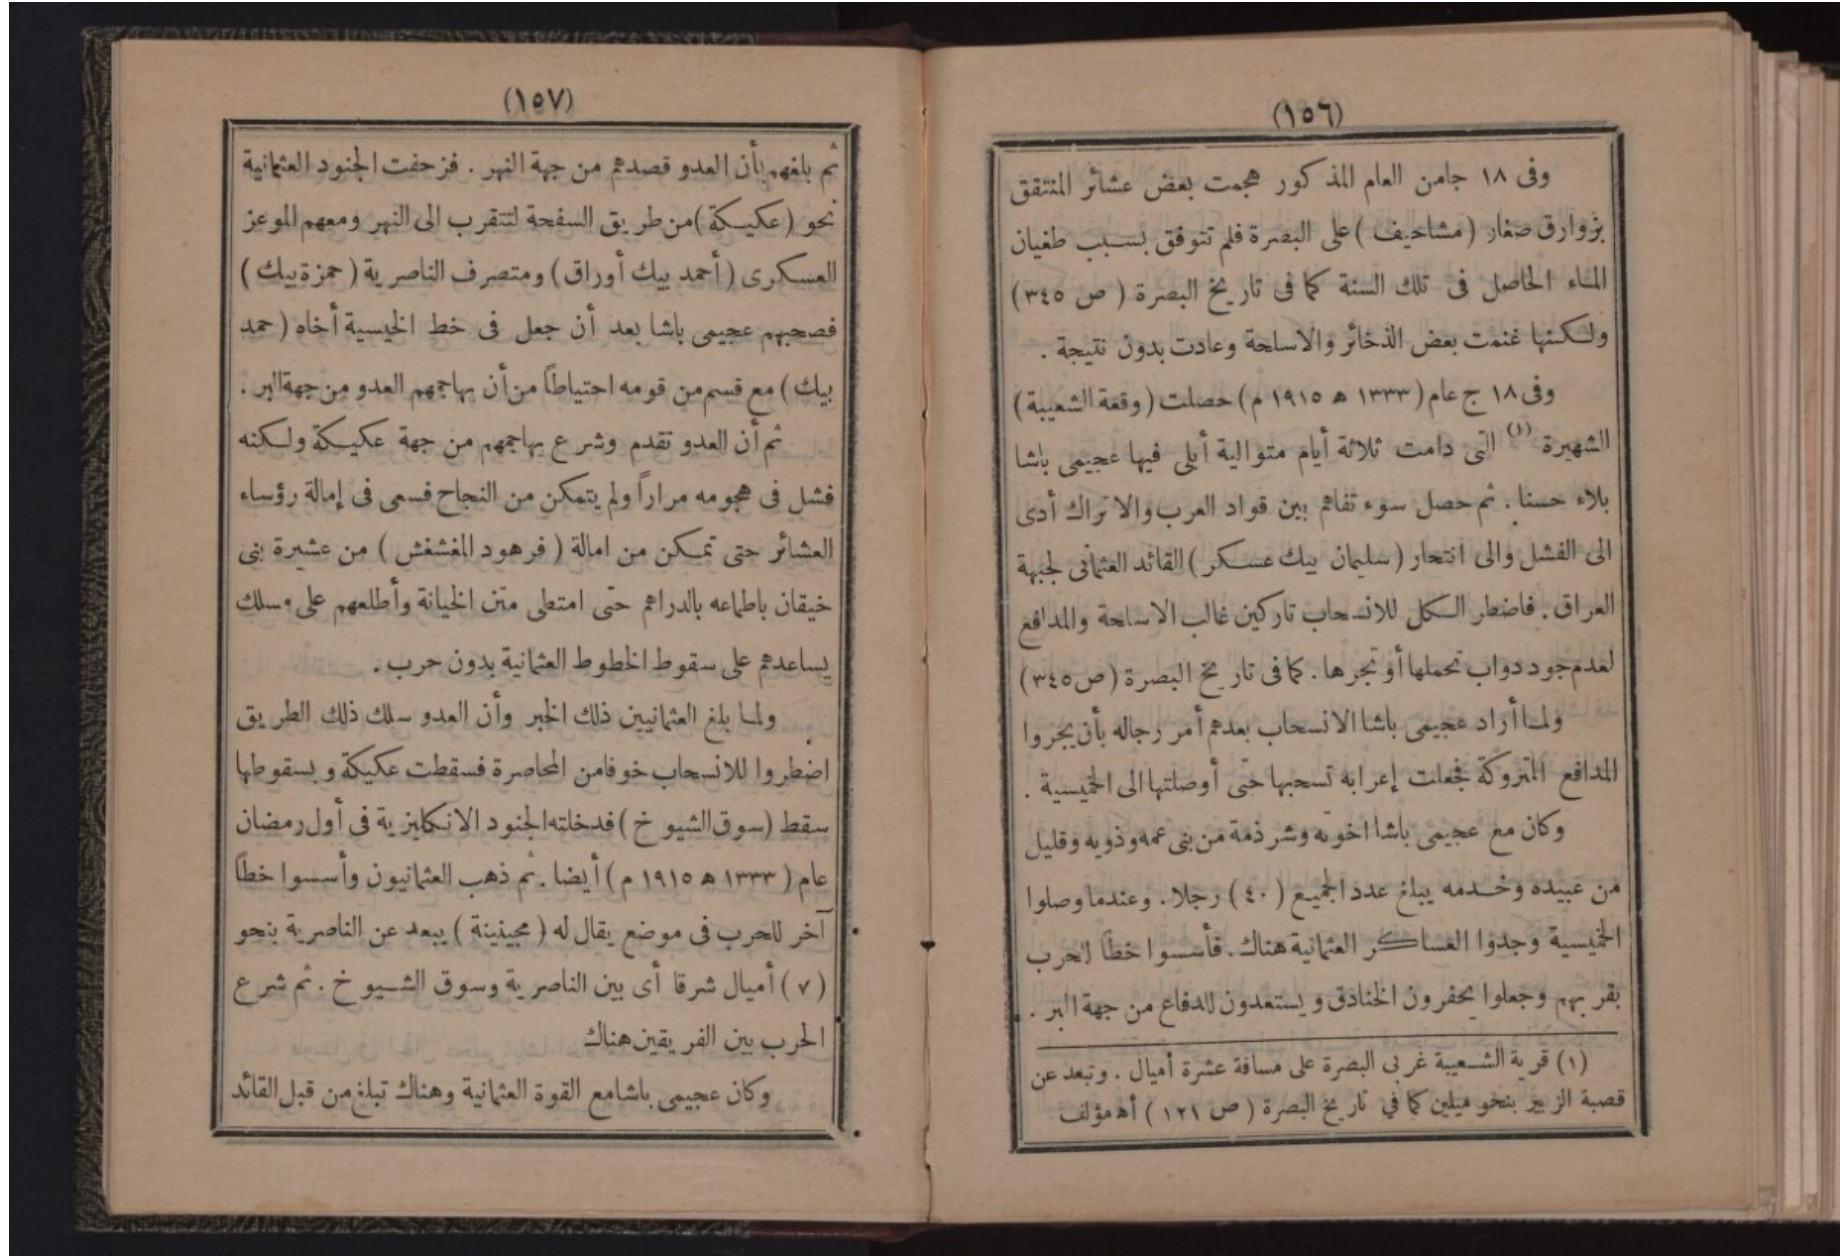 (١٥٦)
وفى ١٨ جامن العام المذكور هجمت بعض عشائر المنتفق
بزوارق صغار (مشاحيف) على البصرة فلم تتوفق بسبب طغيان
الماء الحاصل فى تلك السنة كما فى تاريخ البصرة (ص ٣٤٥)
ولكنها غنمت بعض الذخائر والاسلحة وعادت بدون نتيجة .
وفى ١٨ ج عام (١٣٣٣ ه ١٩١٥ م) حصلت (وقعة الشعيبة)
الشهيرة (١) التى دامت ثلاثة أيام متوالية أبلى فيها عجيمى باشا
بلاء حسنا . ثم حصل سوء تفاهم بين قواد العرب والاتراك أدى
الى الفشل والى انتحار (سليمان بيك عسكر) القائد العثمانى لجبهة
العراق . فاضطر الكل للانسحاب تاركين غالب الاسلحة والمدافع
لعدم جود دواب تحملها أو تجرها . كما فى تاريخ البصرة (ص ٣٤٥)
ولما أراد عجيمى باشا الانسحاب بعدهم أمر رجاله بأن يجروا
المدافع المتروكة فجعلت إعرابه تسحبها حتى أوصلتها الى الخميسية .
وكان مع عجيمى باشا اخوته وشرذمة من بنى عمه وذويه وقليل
من عبيده وخدمه يبلغ عدد الجميع (٤٠) رجلا . وعندما وصلوا
الخميسية وجدوا العساكر العثمانية هناك . فأسسوا خطا للحرب
بقربهم وجعلوا يحفرون الخنادق ويستعدون للدفاع من جهة البر .
(١) قرية الشعيبة غربى البصرة على مسافة عشرة أميال . وتبعد عن
قصبة الزبير بنحو ميلين كما في تاريخ البصرة (ص ١٢١) أه مؤلف
(١٥٧)
ثم بلغهم بأن العدو قصدهم من جهة النهر . فزحفت الجنود العثمانية
نحو (عكيكة) من طريق السفحة لتتقرب الى النهر ومعهم الموعز
العسكرى (أحمد بيك أوراق) ومتصرف الناصرية (حمزة بيك)
فصحبهم عجيمى باشا بعد أن جعل فى خط الخيسية أخاه (حمد
بيك) مع قسم من قومه احتياطاً من أن يهاجمهم العدو من جهة البر .
ثم أن العدو تقدم وشرع يهاجمهم من جهة عكيكة ولكنه
فشل فى هجومه مراراً ولم يتمكن من النجاح فسعى فى إمالة رؤساء
العشائر حتى تمكن من امالة (فرهود المغشغش) من عشيرة بنى
خيقان باطماعه بالدراهم حتى امتطى متن الخيانة وأطلعهم على مسلك
يساعدهم على سقوط الخطوط العثمانية بدون حرب .
ولما بلغ العثمانيين ذلك الخبر وأن العدو سلك ذلك الطريق
اضطروا للانسحاب خوفا من المحاصرة فسقطت عكيكة وبسقوطها
سقط (سوق الشيوخ) فدخلته الجنود الانكليزية فى أول رمضان
عام (١٣٣٣ ه ١٩١٥ م) أيضا . ثم ذهب العثمانيون وأسسوا خطاً
آخر للحرب فى موضع يقال له (مجينينة) يبعد عن الناصرية بنحو
(٧) أميال شرقا أى بين الناصرية وسوق الشيوخ . ثم شرع
الحرب بين الفريقين هناك
وكان عجيمى باشا مع القوة العثمانية وهناك تبلغ من قبل القائد